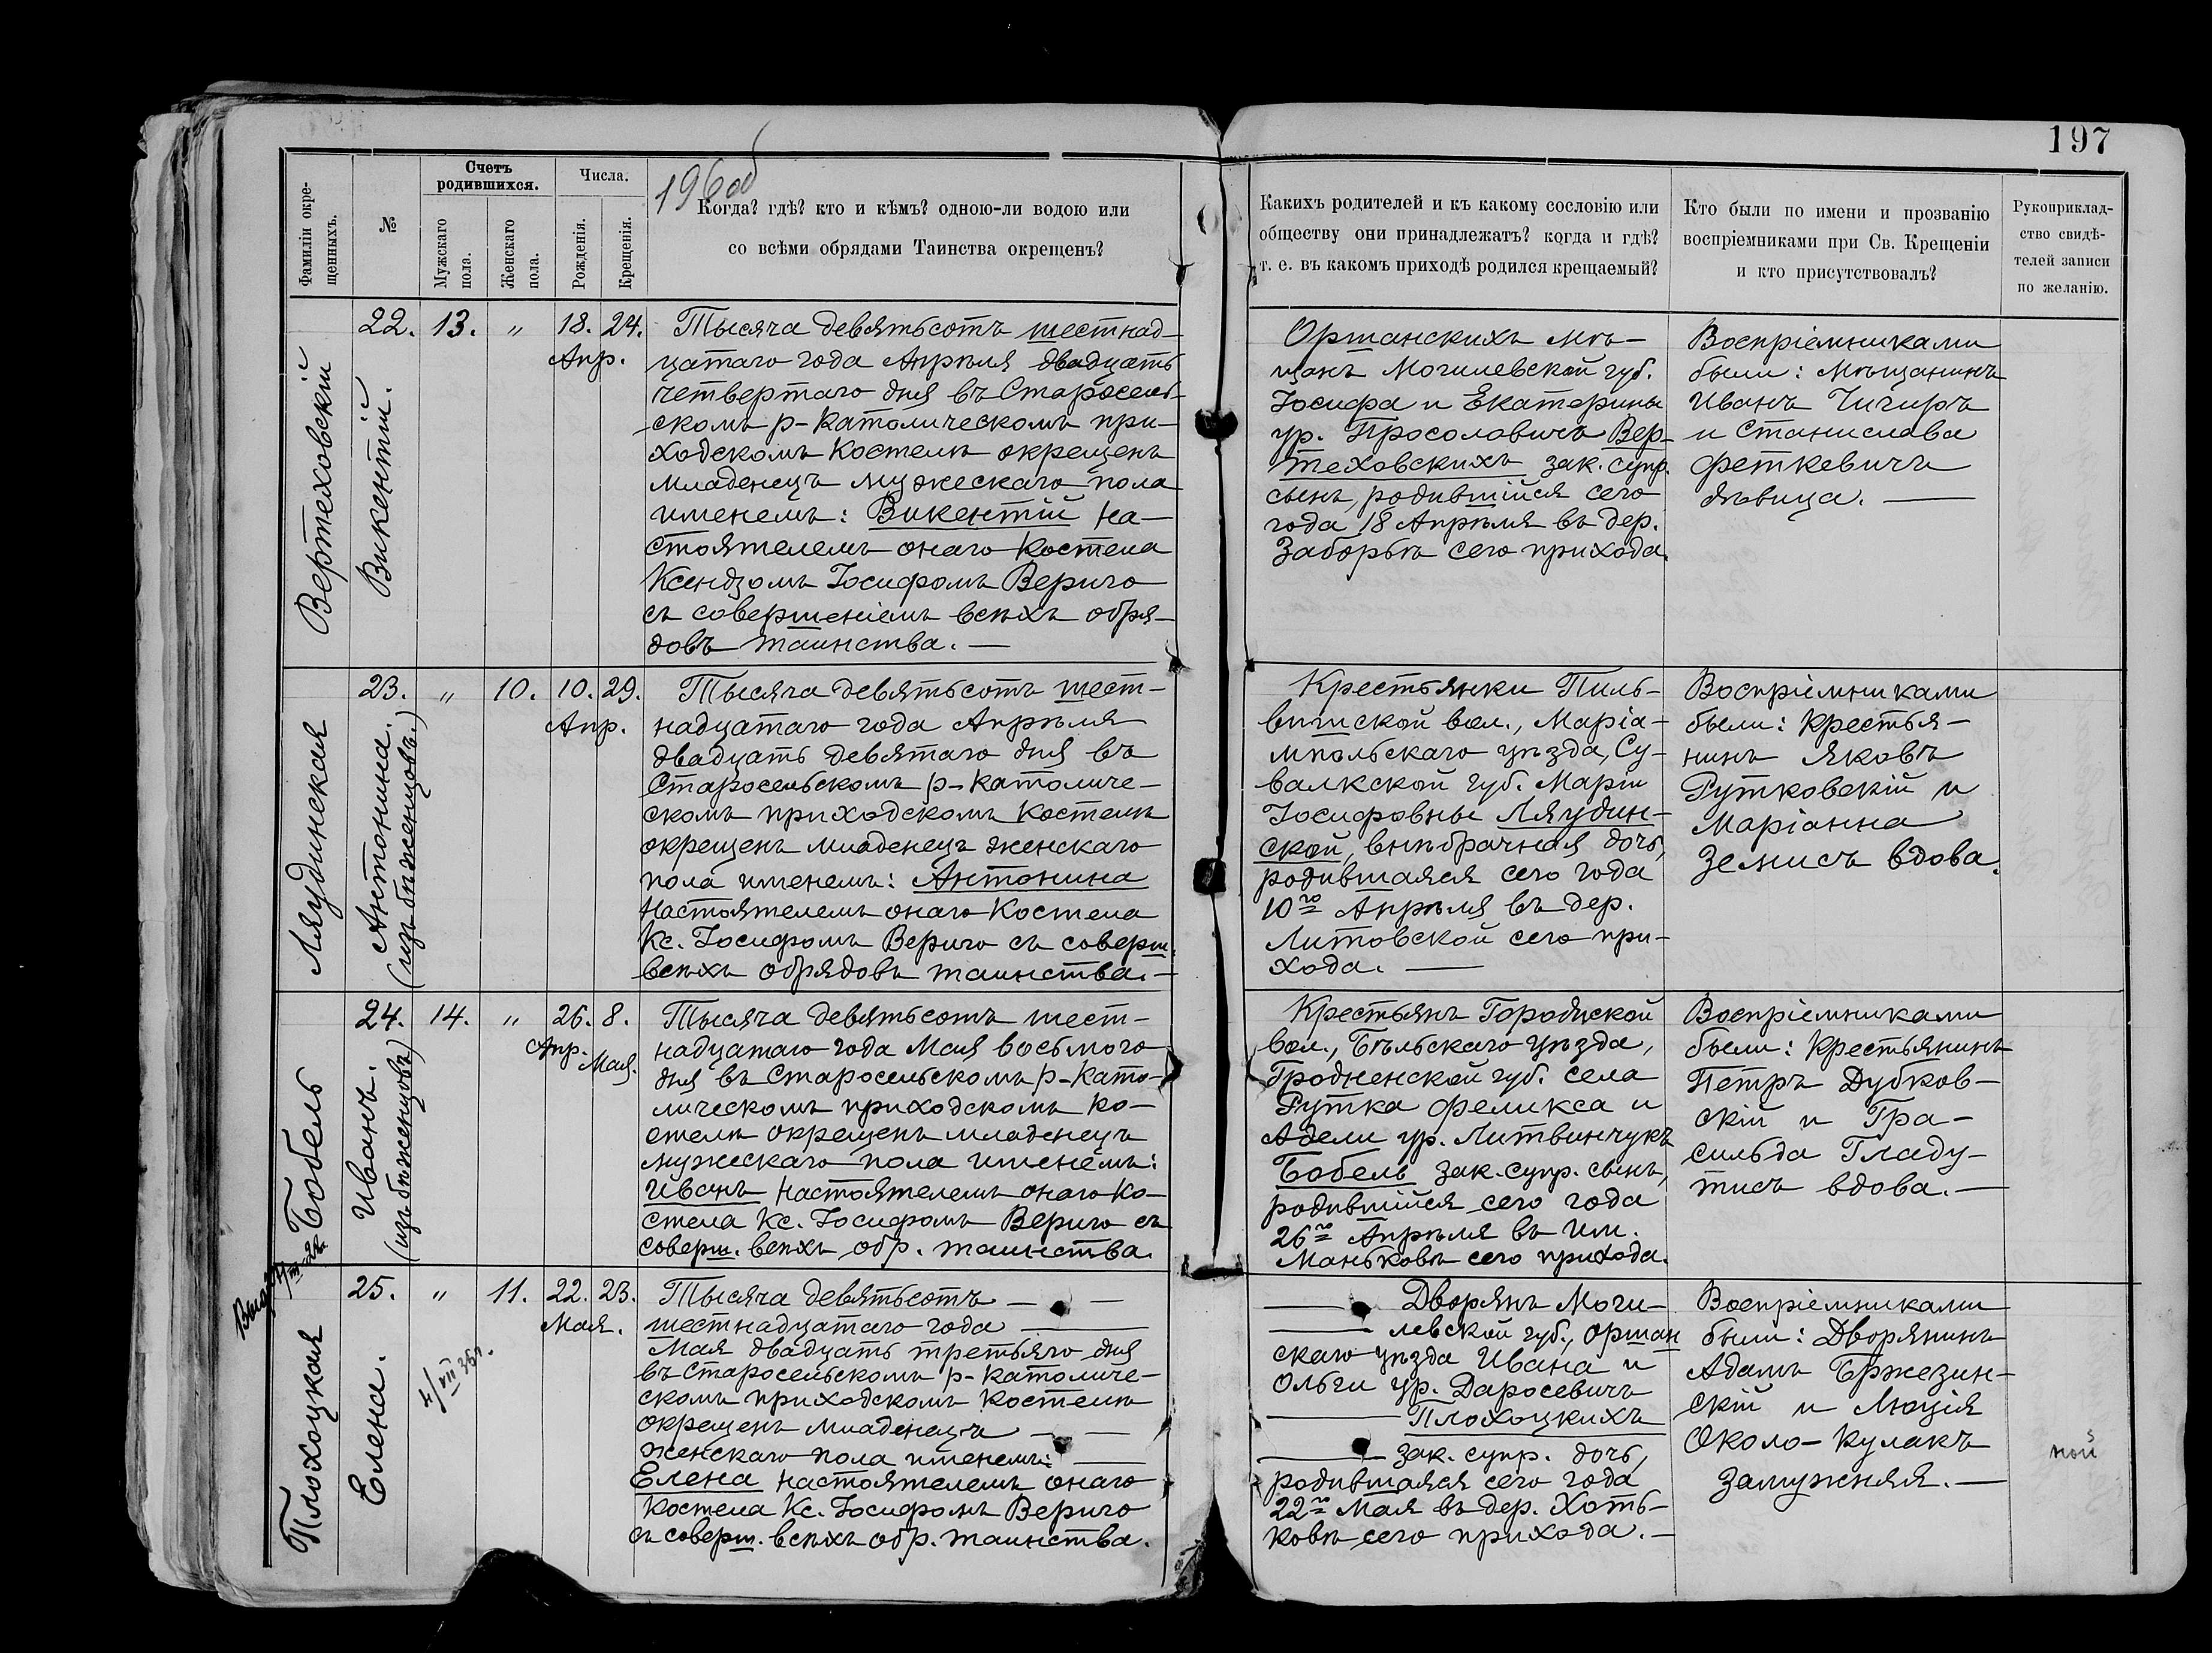 197
196об
Фамиліи окре-
щенныхъ.
№
Счетъ
родившихся.
Мужскаго
пола.
Женскаго
пола.
Числа.
Рожденія.
Крещенія.
Когда? гдѣ? кто и кѣмъ? одною-ли водою или
со всѣми обрядами Таинства окрещенъ?
Какихъ родителей и къ какому сословію или
обществу они принадлежатъ? когда и гдѣ?
т. е. въ какомъ приходѣ родился крещаемый?
Кто были по имени и прозванію
воспріемниками при Св. Крещеніи
и кто присутствовалъ?
Рукоприклад-
ство свидѣ-
телей записи
по желанію.
Вертеховскій
Викентій.
22. 13. " 18. 24.
Апр.
Тысяча девятьсотъ шестнад-
цатаго года Апрѣля двадцать
четвертаго дня въ Старосель-
скомъ р-католическомъ при-
ходскомъ костелѣ окрещенъ
младенецъ мужескаго пола
именемъ: Викентій на-
стоятелемъ онаго костела
Ксендзомъ Іосифомъ Вериго
съ совершеніемъ всѣхъ обря-
довъ таинства. —
Оршанскихъ мѣ-
щанъ Могилевской губ.
Іосифа и Екатерины
ур. Просоловичъ Вер-
теховскихъ зак. супр.
сынъ, родившійся сего
года 18 Апрѣля въ дер.
Заборьѣ сего прихода.
Воспріемниками
были: мѣщанинъ
Иванъ Чигиръ
и Станислава
Феткевичъ
дѣвица. —
Ляудинская
Антонина.
(изъ бѣженцовъ.)
23. " 10. 10. 29.
Апр.
Тысяча девятьсотъ шест-
надцатаго года Апрѣля
двадцать девятаго дня въ
Старосельскомъ р-католиче-
скомъ приходскомъ костелѣ
окрещенъ младенецъ женскаго
пола именемъ: Антонина
настоятелемъ онаго костела
Кс. Іосифомъ Вериго съ соверш.
всѣхъ обрядовъ таинства. —
Крестьянки Пиль-
вишской вол., Маріа-
мпольскаго уѣзда, Су-
валкской губ. Маріи
Іосифовны Ляудин-
ской, внѣбрачная дочь,
родившаяся сего года
10го Апрѣля въ дер.
Литовской сего при-
хода. —
Воспріемниками
были: крестья-
нинъ Яковъ
Рутковскій и
Маріанна
Земисъ вдова.
Бобель
Иванъ.
(изъ бѣженцовъ)
24. 14. " 26. 8.
Апр. Мая.
Тысяча девятьсотъ шест-
надцатаго года Мая восьмого
дня въ Старосельскомъ р-като-
лическомъ приходскомъ ко-
стелѣ окрещенъ младенецъ
мужескаго пола именемъ:
Иванъ настоятелемъ онаго ко-
стела Кс. Іосифомъ Вериго съ
соверш. всѣхъ обр. таинства.
Крестьянъ Городиской
вол., Бѣльскаго уѣзда,
Гродненской губ. села
Рутка Феликса и
Адели ур. Литвинчукъ
Бобель зак. супр. сынъ,
родившійся сего года
26го Апрѣля въ им.
Маньковѣ сего прихода.
Воспріемниками
были: крестьянинъ
Петръ Дубков-
скій и Гра-
сильда Гладу-
тисъ вдова. —
Плохоцкая
Елена.
25. " 11. 22. 23.
Мая.
4/VII 36г.
Тысяча девятьсотъ —
шестнадцатаго года —
Мая двадцать третьяго дня
въ Старосельскомъ р-католиче-
скомъ приходскомъ костелѣ
окрещенъ младенецъ —
женскаго пола именемъ: —
Елена настоятелемъ онаго
костела Кс. Іосифомъ Вериго
съ соверш. всѣхъ обр. таинства.
— Дворянъ Моги-
— левской губ., Оршан
скаго уѣзда Ивана и
Ольги ур. Даросевичъ
— Плохоцкихъ
— зак. супр. дочь,
родившаяся сего года
22го Мая въ дер. Хоть-
ковѣ сего прихода. —
Воспріемниками
были: Дворянинъ
Адамъ Бржезин-
скій и Люція
Около-Кулакъ
замужняя. —